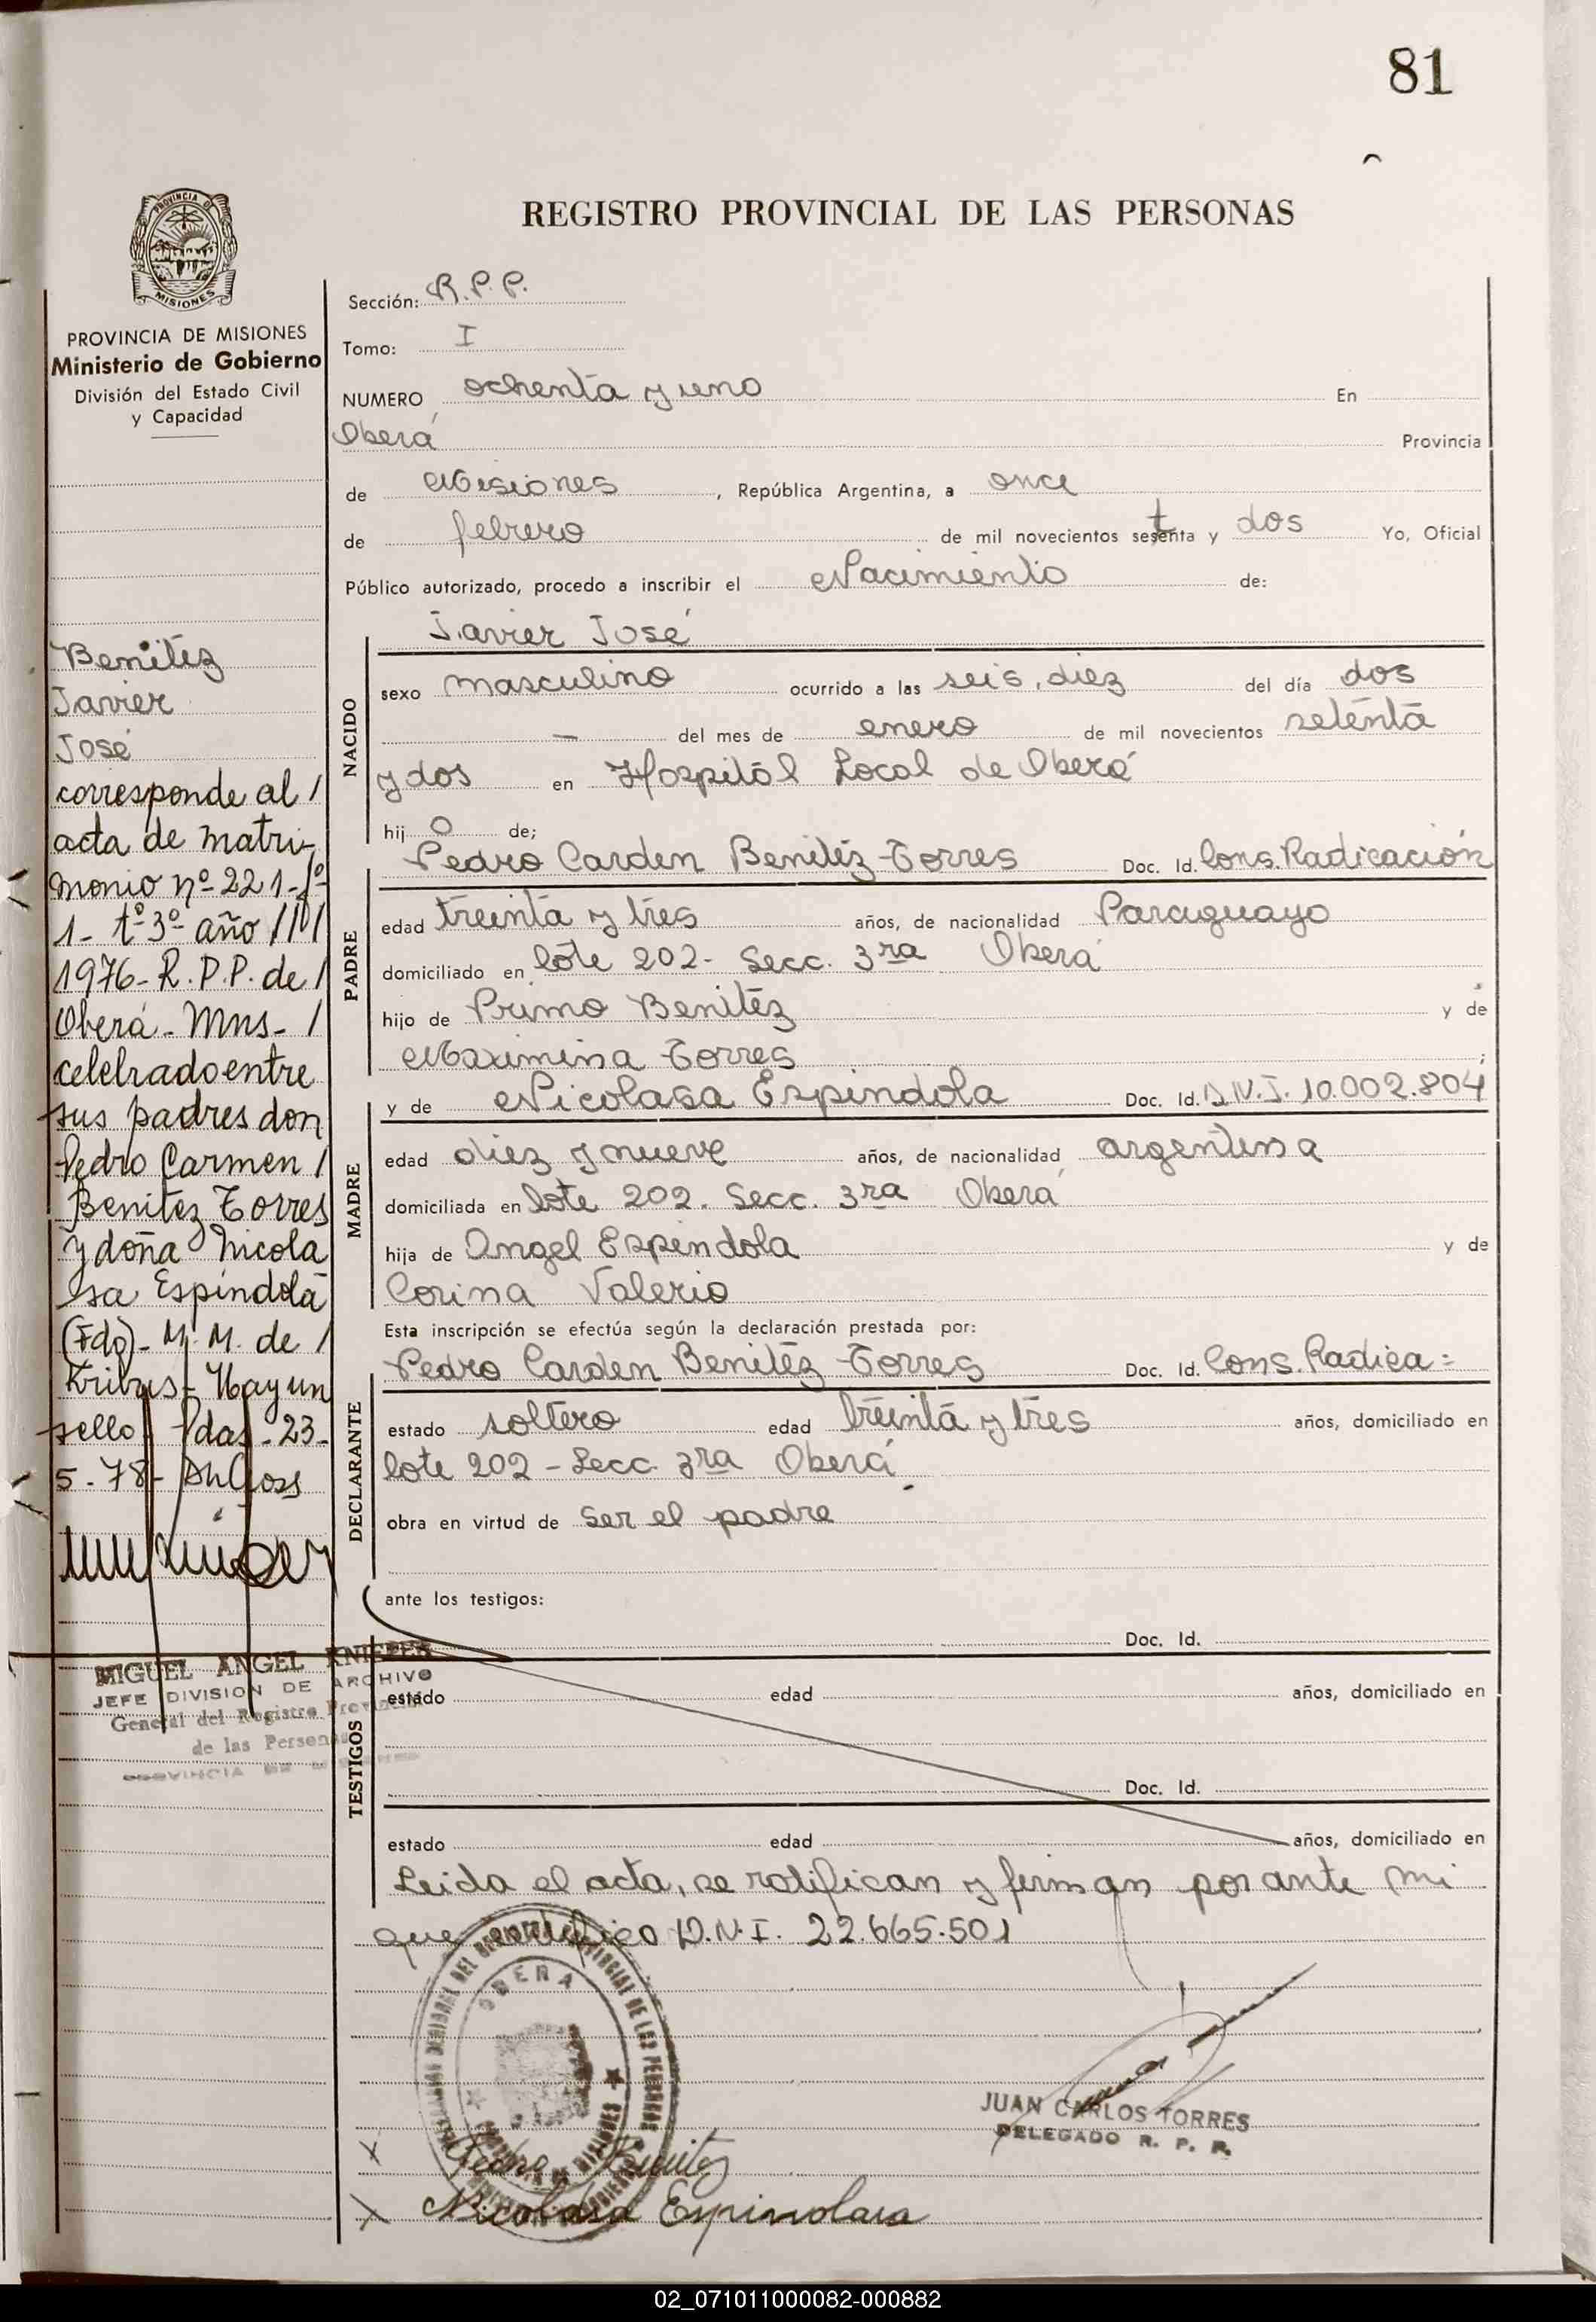 81
REGISTRO PROVINCIAL DE LAS PERSONAS
PROVINCIA DE MISIONES
PROVINCIA DE MISIONES
Ministerio de Gobierno
División del Estado Civil
y Capacidad
Benitez
Javier
José
corresponde al /
acta de matri-
monio nº 221-fº
1- tº 3º año ////
1976- R.P.P. de /
Oberá - Mns- /
celebrado entre
sus padres don
Pedro Carmen /
Benitez Torres
y doña Nicola
sa Espíndola
(Fdo)- M. M. de /
Hay un
sello Pdas - 23-
5-78-
MIGUEL ANGEL KNIEPER
JEFE DIVISION DE ARCHIVO
General del Registro Provincial
de las Personas
PROVINCIA DE
Sección: R.P.P.
Tomo: I
NUMERO ochenta y uno En
Oberá Provincia
de Misiones, República Argentina, a once
de febrero de mil novecientos setenta y dos Yo, Oficial
Público autorizado, procedo a inscribir el Nacimiento de:
Javier José
NACIDO
sexo masculino ocurrido a las seis, diez del día dos
— del mes de enero de mil novecientos setenta
y dos en Hospital Local de Oberá
hijo de;
Pedro Carden Benitez Torres Doc. Id. Cons. Radicación
PADRE
edad treinta y tres años, de nacionalidad Paraguayo
domiciliado en lote 202- Secc. 3ra Oberá
hijo de Primo Benitez y de
Maximina Torres;
y de Nicolasa Espindola Doc. Id. D.N.I. 10.002.804
MADRE
edad diez y nueve años, de nacionalidad argentina
domiciliada en lote 202. Secc. 3ra Oberá
hija de Angel Espindola y de
Corina Valerio
Esta inscripción se efectúa según la declaración prestada por:
Pedro Carden Benitez Torres Doc. Id. Cons. Radica=
DECLARANTE
estado soltero edad treinta y tres años, domiciliado en
lote 202 - Secc. 3ra Oberá
obra en virtud de ser el padre
ante los testigos:
Doc. Id.
TESTIGOS
estado edad años, domiciliado en
Doc. Id.
estado edad años, domiciliado en
Leida el acta, se ratifican y firman por ante mi
que certifico D.N.I. 22.665.501
OBERA
JUAN CARLOS TORRES
DELEGADO R. P. P.
X Pedro Benitez
X Nicolasa
02_071011000082-000882